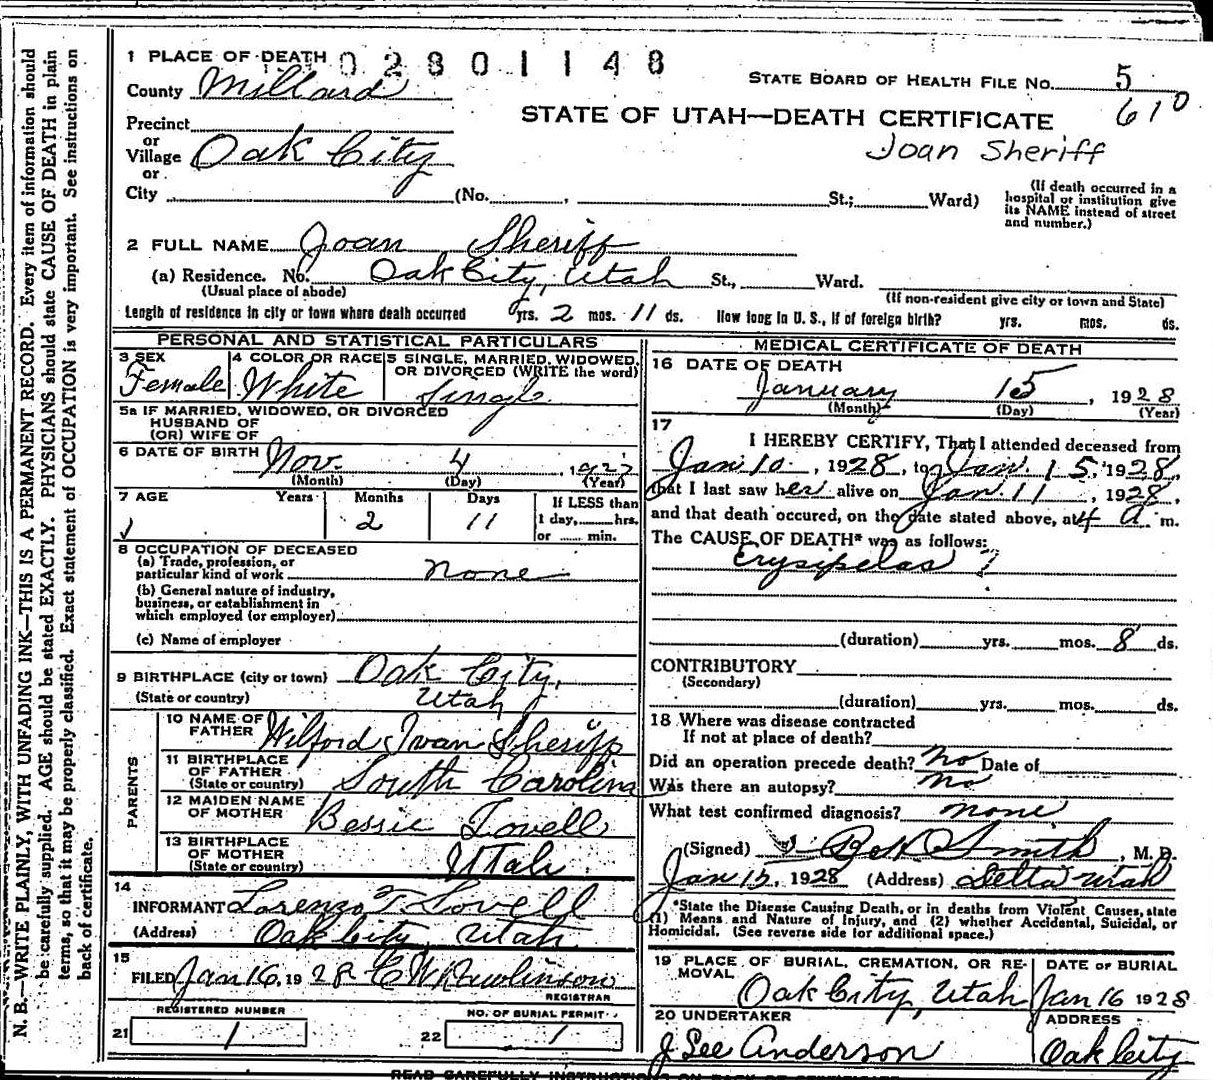 1 PLACE OF DEATH 02801148
STATE BOARD OF HEALTH FILE No. 5
610
County Millard
STATE OF UTAH—DEATH CERTIFICATE
Joan Sheriff
Precinct
or
Village Oak City
or
City (No. , St.; Ward)
(If death occurred in a
hospital or institution give
its NAME instead of street
and number.)
2 FULL NAME Joan Sheriff
(a) Residence. No. Oak City, Utah St., Ward.
(Usual place of abode)
(If non-resident give city or town and State)
Length of residence in city or town where death occurred yrs. 2 mos. 11 ds. How long in U. S., if of foreign birth? yrs. mos. ds.
PERSONAL AND STATISTICAL PARTICULARS
3 SEX
Female
4 COLOR OR RACE
White
5 SINGLE, MARRIED, WIDOWED,
OR DIVORCED (WRITE the word)
Single
5a IF MARRIED, WIDOWED, OR DIVORCED
HUSBAND OF
(OR) WIFE OF
6 DATE OF BIRTH Nov. 4, 1927
(Month) (Day) (Year)
7 AGE Years Months Days If LESS than
2 11 1 day, hrs.
or min.
8 OCCUPATION OF DECEASED
(a) Trade, profession, or
particular kind of work none
(b) General nature of industry,
business, or establishment in
which employed (or employer)
(c) Name of employer
9 BIRTHPLACE (city or town) Oak City,
(State or country) Utah
PARENTS
10 NAME OF
FATHER Wilford Ivan Sheriff
11 BIRTHPLACE
OF FATHER
(State or country) South Carolina
12 MAIDEN NAME
OF MOTHER Bessie Lovell
13 BIRTHPLACE
OF MOTHER
(State or country) Utah
14
INFORMANT Lorenzo T Lovell
(Address) Oak City, Utah
15
FILED Jan 16, 1928 C W Rawlinson
REGISTRAR
REGISTERED NUMBER
21 1
NO. OF BURIAL PERMIT
22 1
MEDICAL CERTIFICATE OF DEATH
16 DATE OF DEATH
January 15, 1928
(Month) (Day) (Year)
17
I HEREBY CERTIFY, That I attended deceased from
Jan. 10, 1928, to Jan. 15, 1928,
that I last saw her alive on Jan. 11, 1928,
and that death occured, on the date stated above, at 4 a m.
The CAUSE OF DEATH* was as follows:
Erysipelas ?
(duration) yrs. mos. 8 ds.
CONTRIBUTORY
(Secondary)
(duration) yrs. mos. ds.
18 Where was disease contracted
If not at place of death?
Did an operation precede death? No Date of
Was there an autopsy? No
What test confirmed diagnosis? none
(Signed) Smith, M. D.
Jan 15, 1928 (Address) Delta Utah
*State the Disease Causing Death, or in deaths from Violent Causes, state
(1) Means and Nature of Injury, and (2) whether Accidental, Suicidal, or
Homicidal. (See reverse side for additional space.)
19 PLACE OF BURIAL, CREMATION, OR RE-
MOVAL
Oak City, Utah
DATE OF BURIAL
Jan 16 1928
20 UNDERTAKER
J Lee Anderson
ADDRESS
Oak City
READ CAREFULLY INSTRUCTIONS ON BACK OF CERTIFICATE
N. B.—WRITE PLAINLY, WITH UNFADING INK—THIS IS A PERMANENT RECORD. Every item of information should
be carefully supplied. AGE should be stated EXACTLY. PHYSICIANS should state CAUSE OF DEATH in plain
terms, so that it may be properly classified. Exact statement of OCCUPATION is very important. See instructions on
back of certificate.